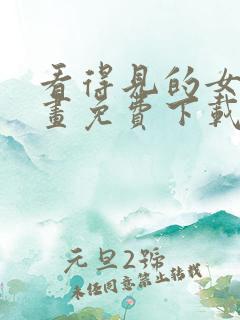 看得见的女
画免费下载
元旦2号
未经同意禁止转载